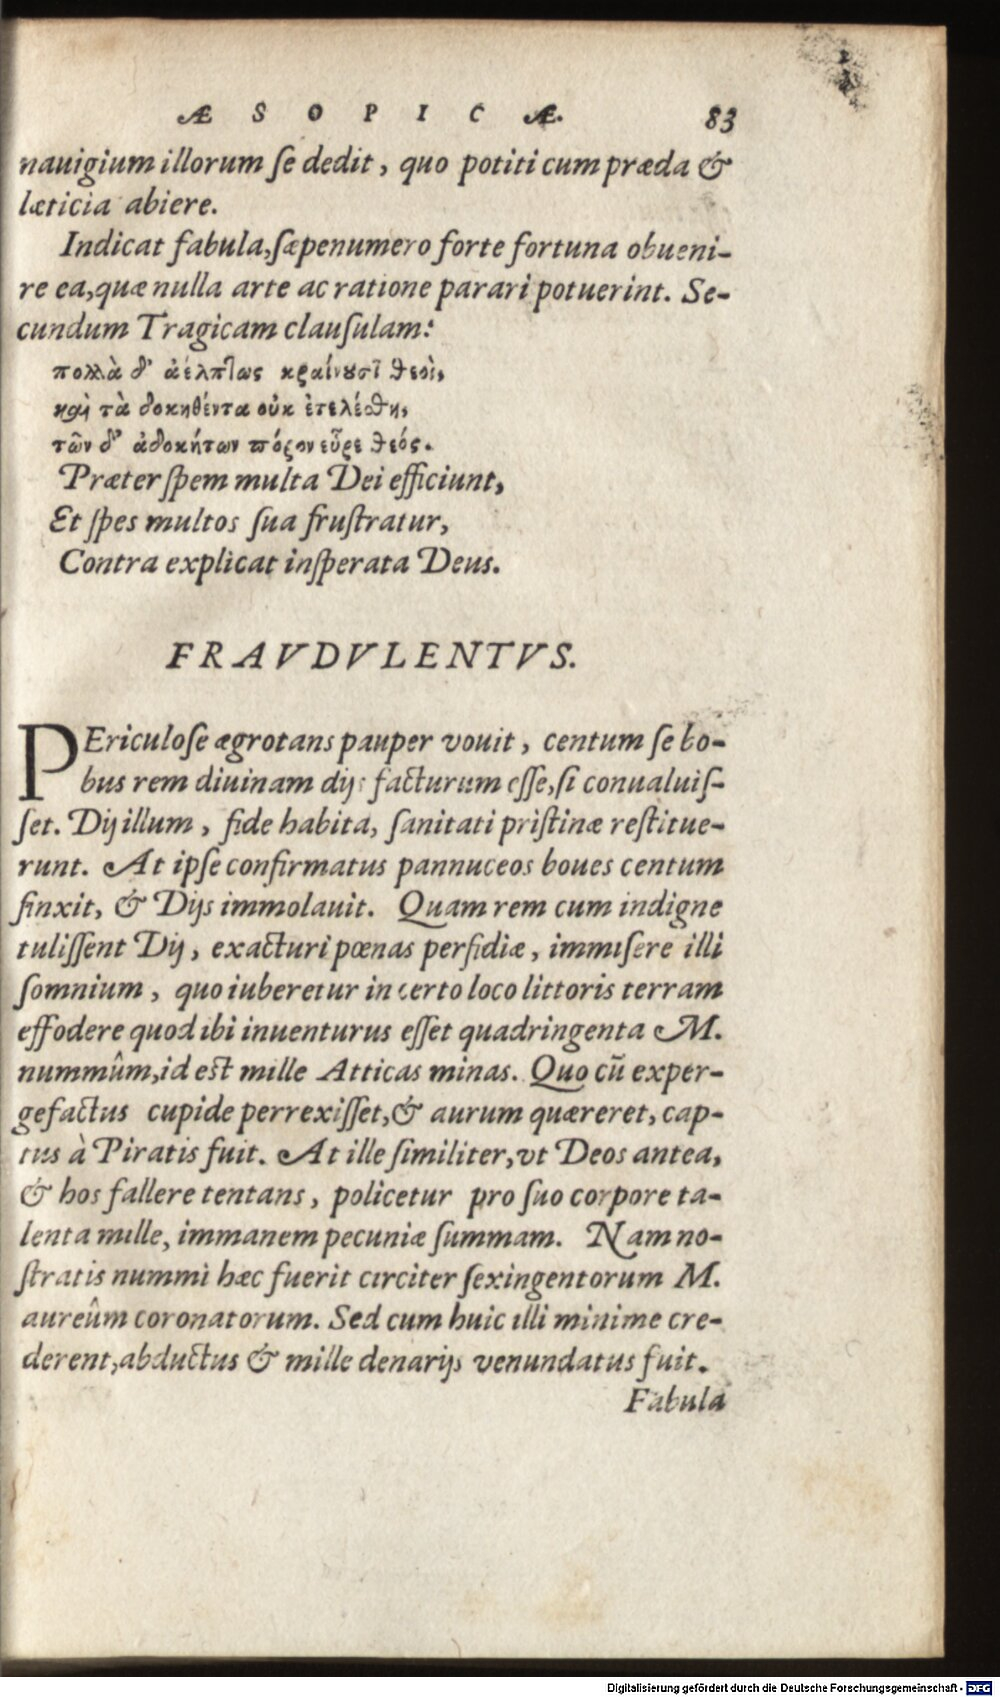 ÆSOPICÆ. 83
nauigium illorum ſe dedit, quo potiti cum præda &
læticia abiere.
Indicat fabula, ſæpenumero forte fortuna obueni-
re ea, quæ nulla arte ac ratione parari potuerint. Se-
cundum Tragicam clauſulam:
πολλὰ δ' ἀέλπτως κραίνουσι θεοὶ,
καὶ τὰ δοκηθέντα οὐκ ἐτελέσθη,
τῶν δ' ἀδοκήτων πόρον εὗρε θεός.
Præter ſpem multa Dei efficiunt,
Et ſpes multos ſua fruſtratur,
Contra explicat inſperata Deus.
FRAVDVLENTVS.
PEriculoſe ægrotans pauper vouit, centum ſe bo-
bus rem diuinam dijs facturum eſſe, ſi conualuiſ-
ſet. Dij illum, fide habita, ſanitati priſtinæ reſtitue-
runt. At ipſe confirmatus pannuceos boues centum
finxit, & Dijs immolauit. Quam rem cum indigne
tuliſſent Dij, exacturi pœnas perfidiæ, immiſere illi
ſomnium, quo iuberetur in certo loco littoris terram
effodere quod ibi inuenturus eſſet quadringenta M.
nummûm, id eſt mille Atticas minas. Quo cũ exper-
gefactus cupide perrexiſſet, & aurum quæreret, cap-
tus à Piratis fuit. At ille ſimiliter, vt Deos antea,
& hos fallere tentans, policetur pro ſuo corpore ta-
lenta mille, immanem pecuniæ ſummam. Nam no-
ſtratis nummi hæc fuerit circiter ſexingentorum M.
aureûm coronatorum. Sed cum huic illi minime cre-
derent, abductus & mille denarijs venundatus fuit.
Fabula
Digitalisierung gefördert durch die Deutsche Forschungsgemeinschaft - DFG